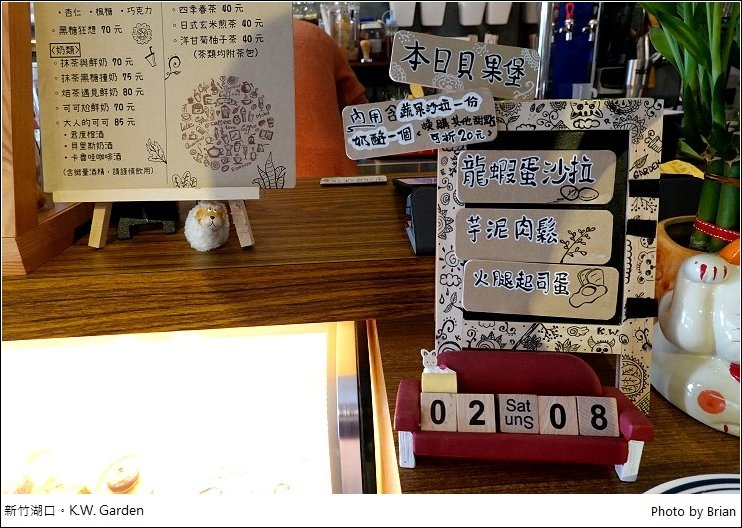 • 杏仁 • 楓糖 • 巧克力
• 黑糖狂想 70 元
<奶類>
• 抹茶與鮮奶 70 元
• 抹茶黑糖撞奶 75 元
• 焙茶遇見鮮奶 80 元
• 可可尬鮮奶 70 元
• 大人的可可 85 元
• 君度橙酒
• 貝里斯奶酒
• 卡魯哇咖啡酒
(含微量酒精，請謹慎飲用)
• 四季春茶 40 元
• 日式玄米煎茶 40 元
• 洋甘菊柚子茶 40 元
(茶類均附茶包)
本日貝果堡
內用含蔬果沙拉一份
奶酪一個,或購其他甜點可折20元
龍蝦蛋沙拉
芋泥肉鬆
火腿起司蛋
GARDEN
K.W.
02 Sat Sun 08
新竹湖口。K.W. Garden
Photo by Brian